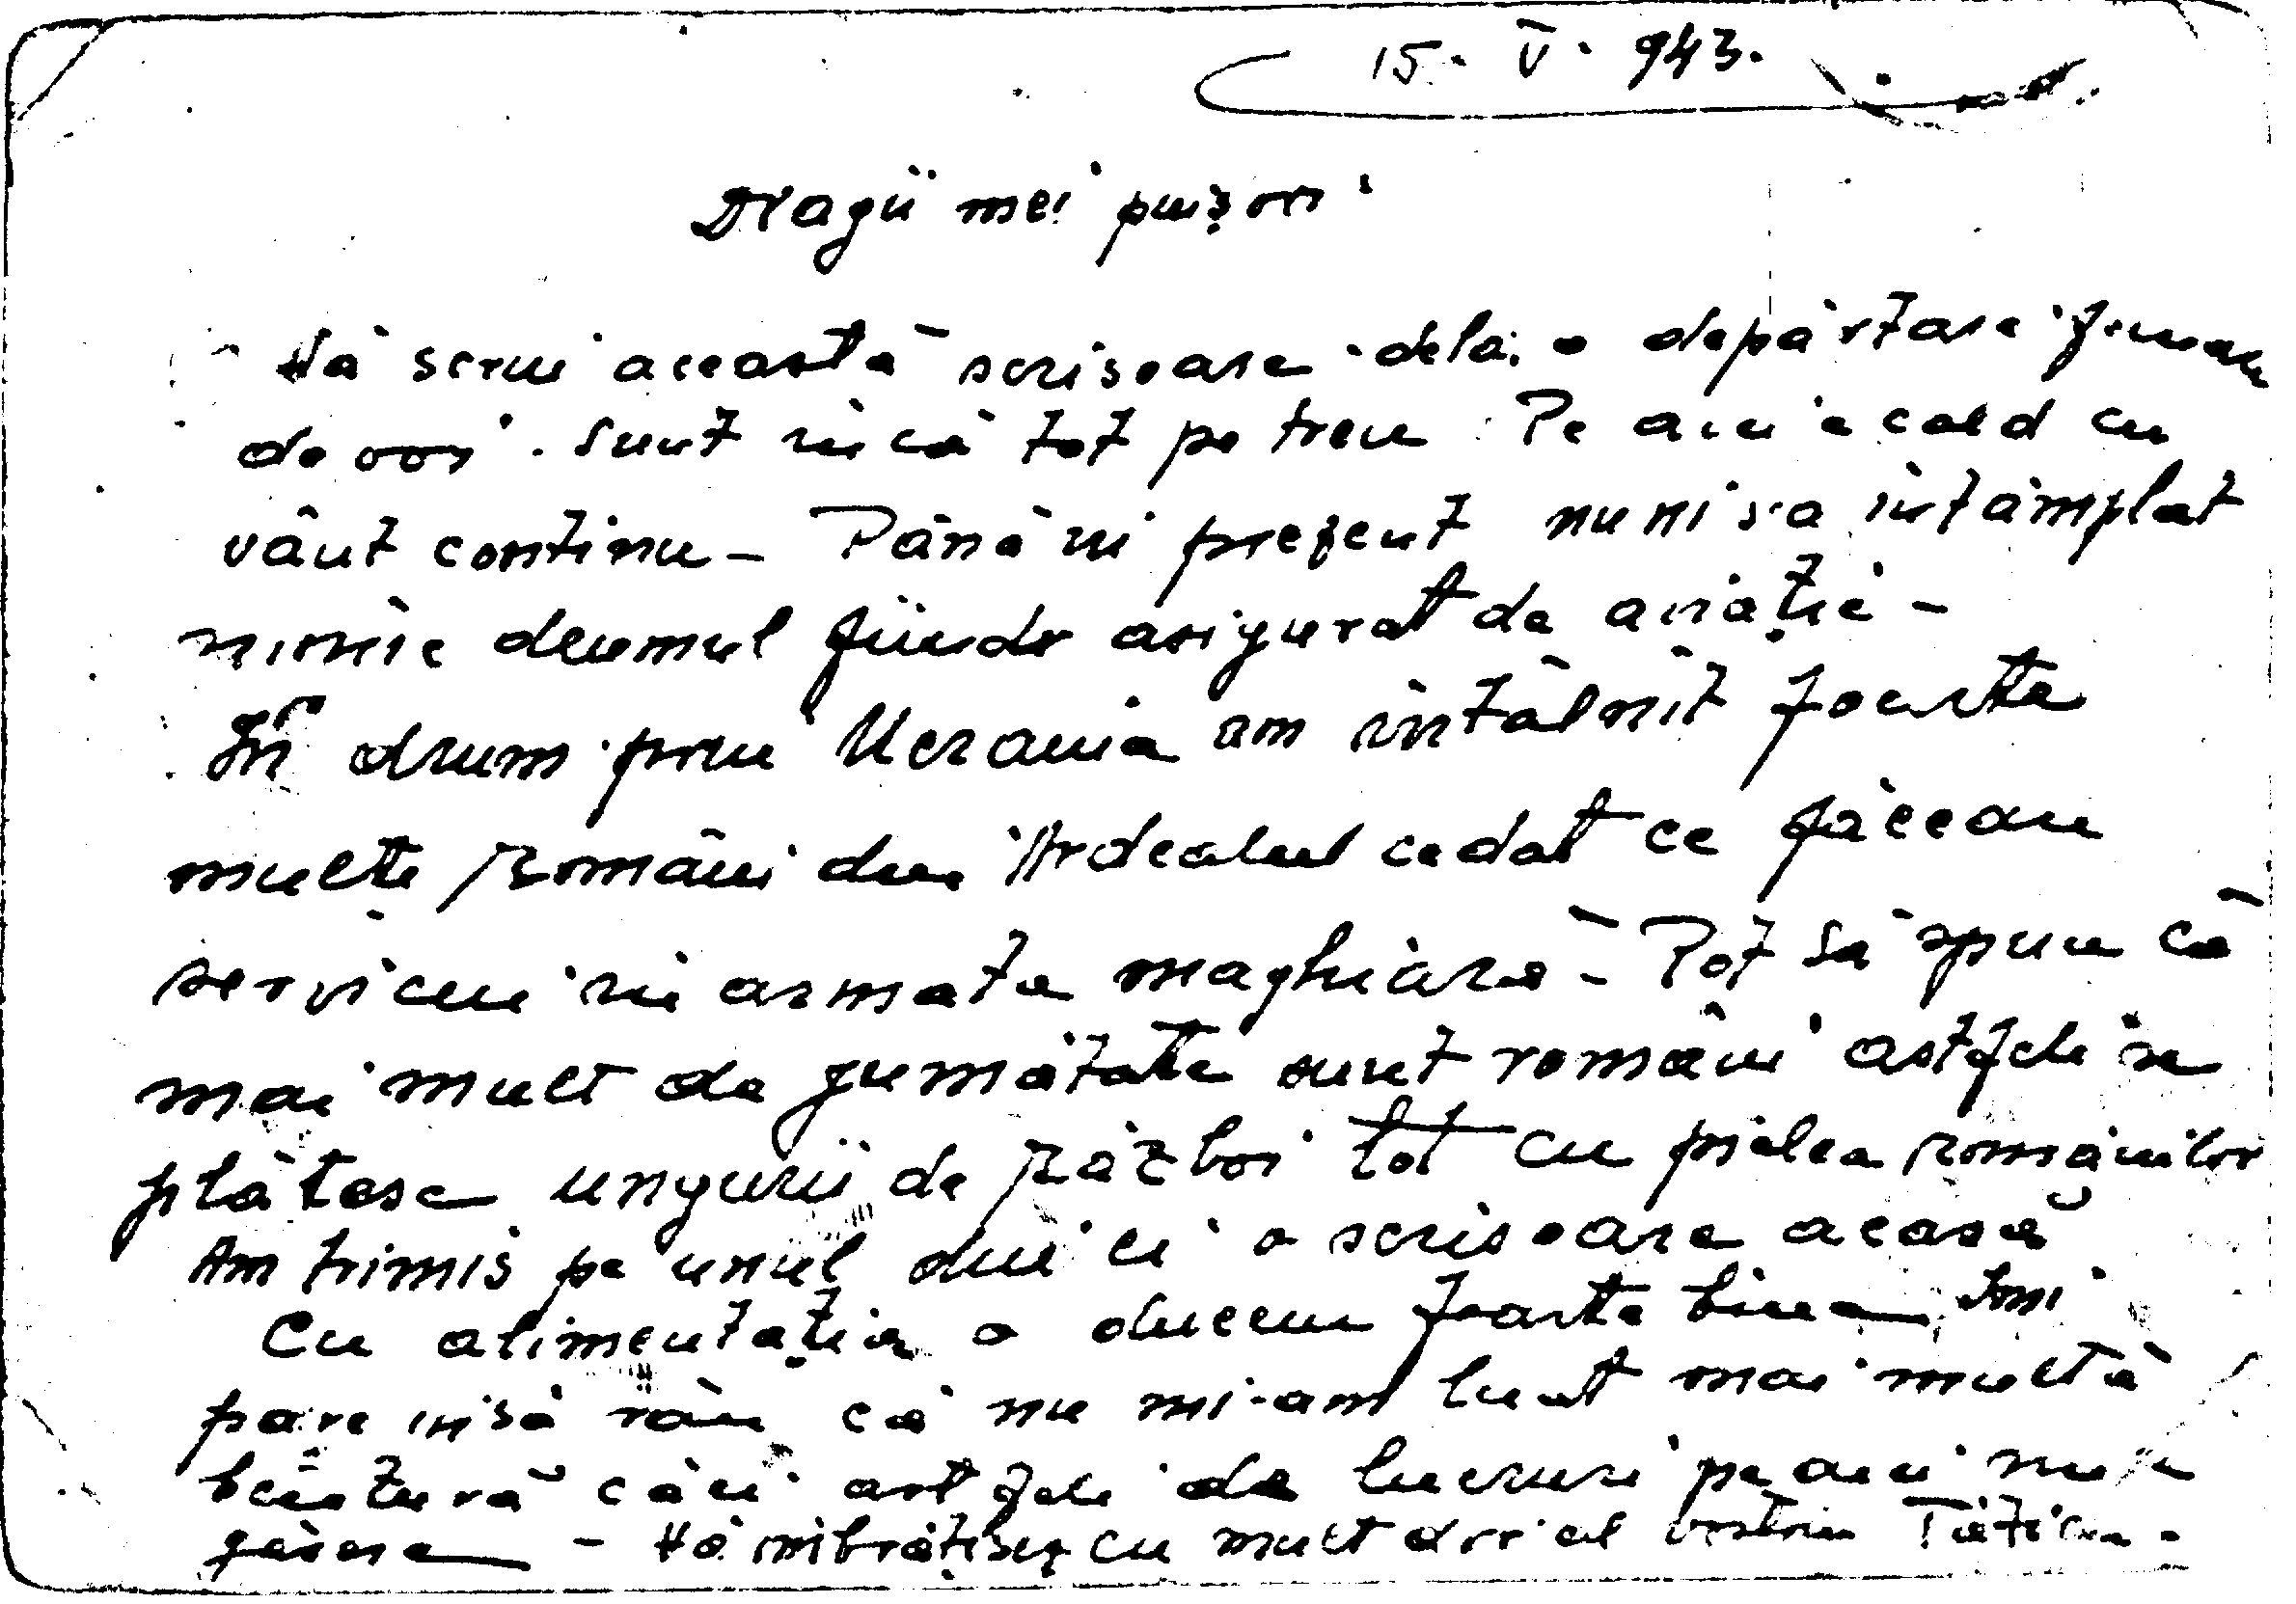 15. V. 943.
Dragii mei puișori
Vă scriu această scrisoare dela o depărtare
de voi. Sunt încă tot pe tren. Pe aici e cald cu
vânt continu – Până în prezent nu ni s'a întâmplat
nimic drumul fiind asigurat de aviație –
În drum prin Ucrania am întâlnit foarte
mulți Români din Ardealul cedat ce făceau
serviciu în armata maghiară – Pot să spun că
mai mult de jumătate sunt români astfel se
plătesc ungurii de război tot cu pielea Românilor
Am trimis pe unul din ei o scrisoare acasă
Cu alimentația o ducem foarte bine Îmi
pare însă rău că nu mi-am luat mai multă
băutură căci astfel de lucruri pe aici nu se
găsesc – Vă îmbrățișez cu mult dor al vostru Tăticu.